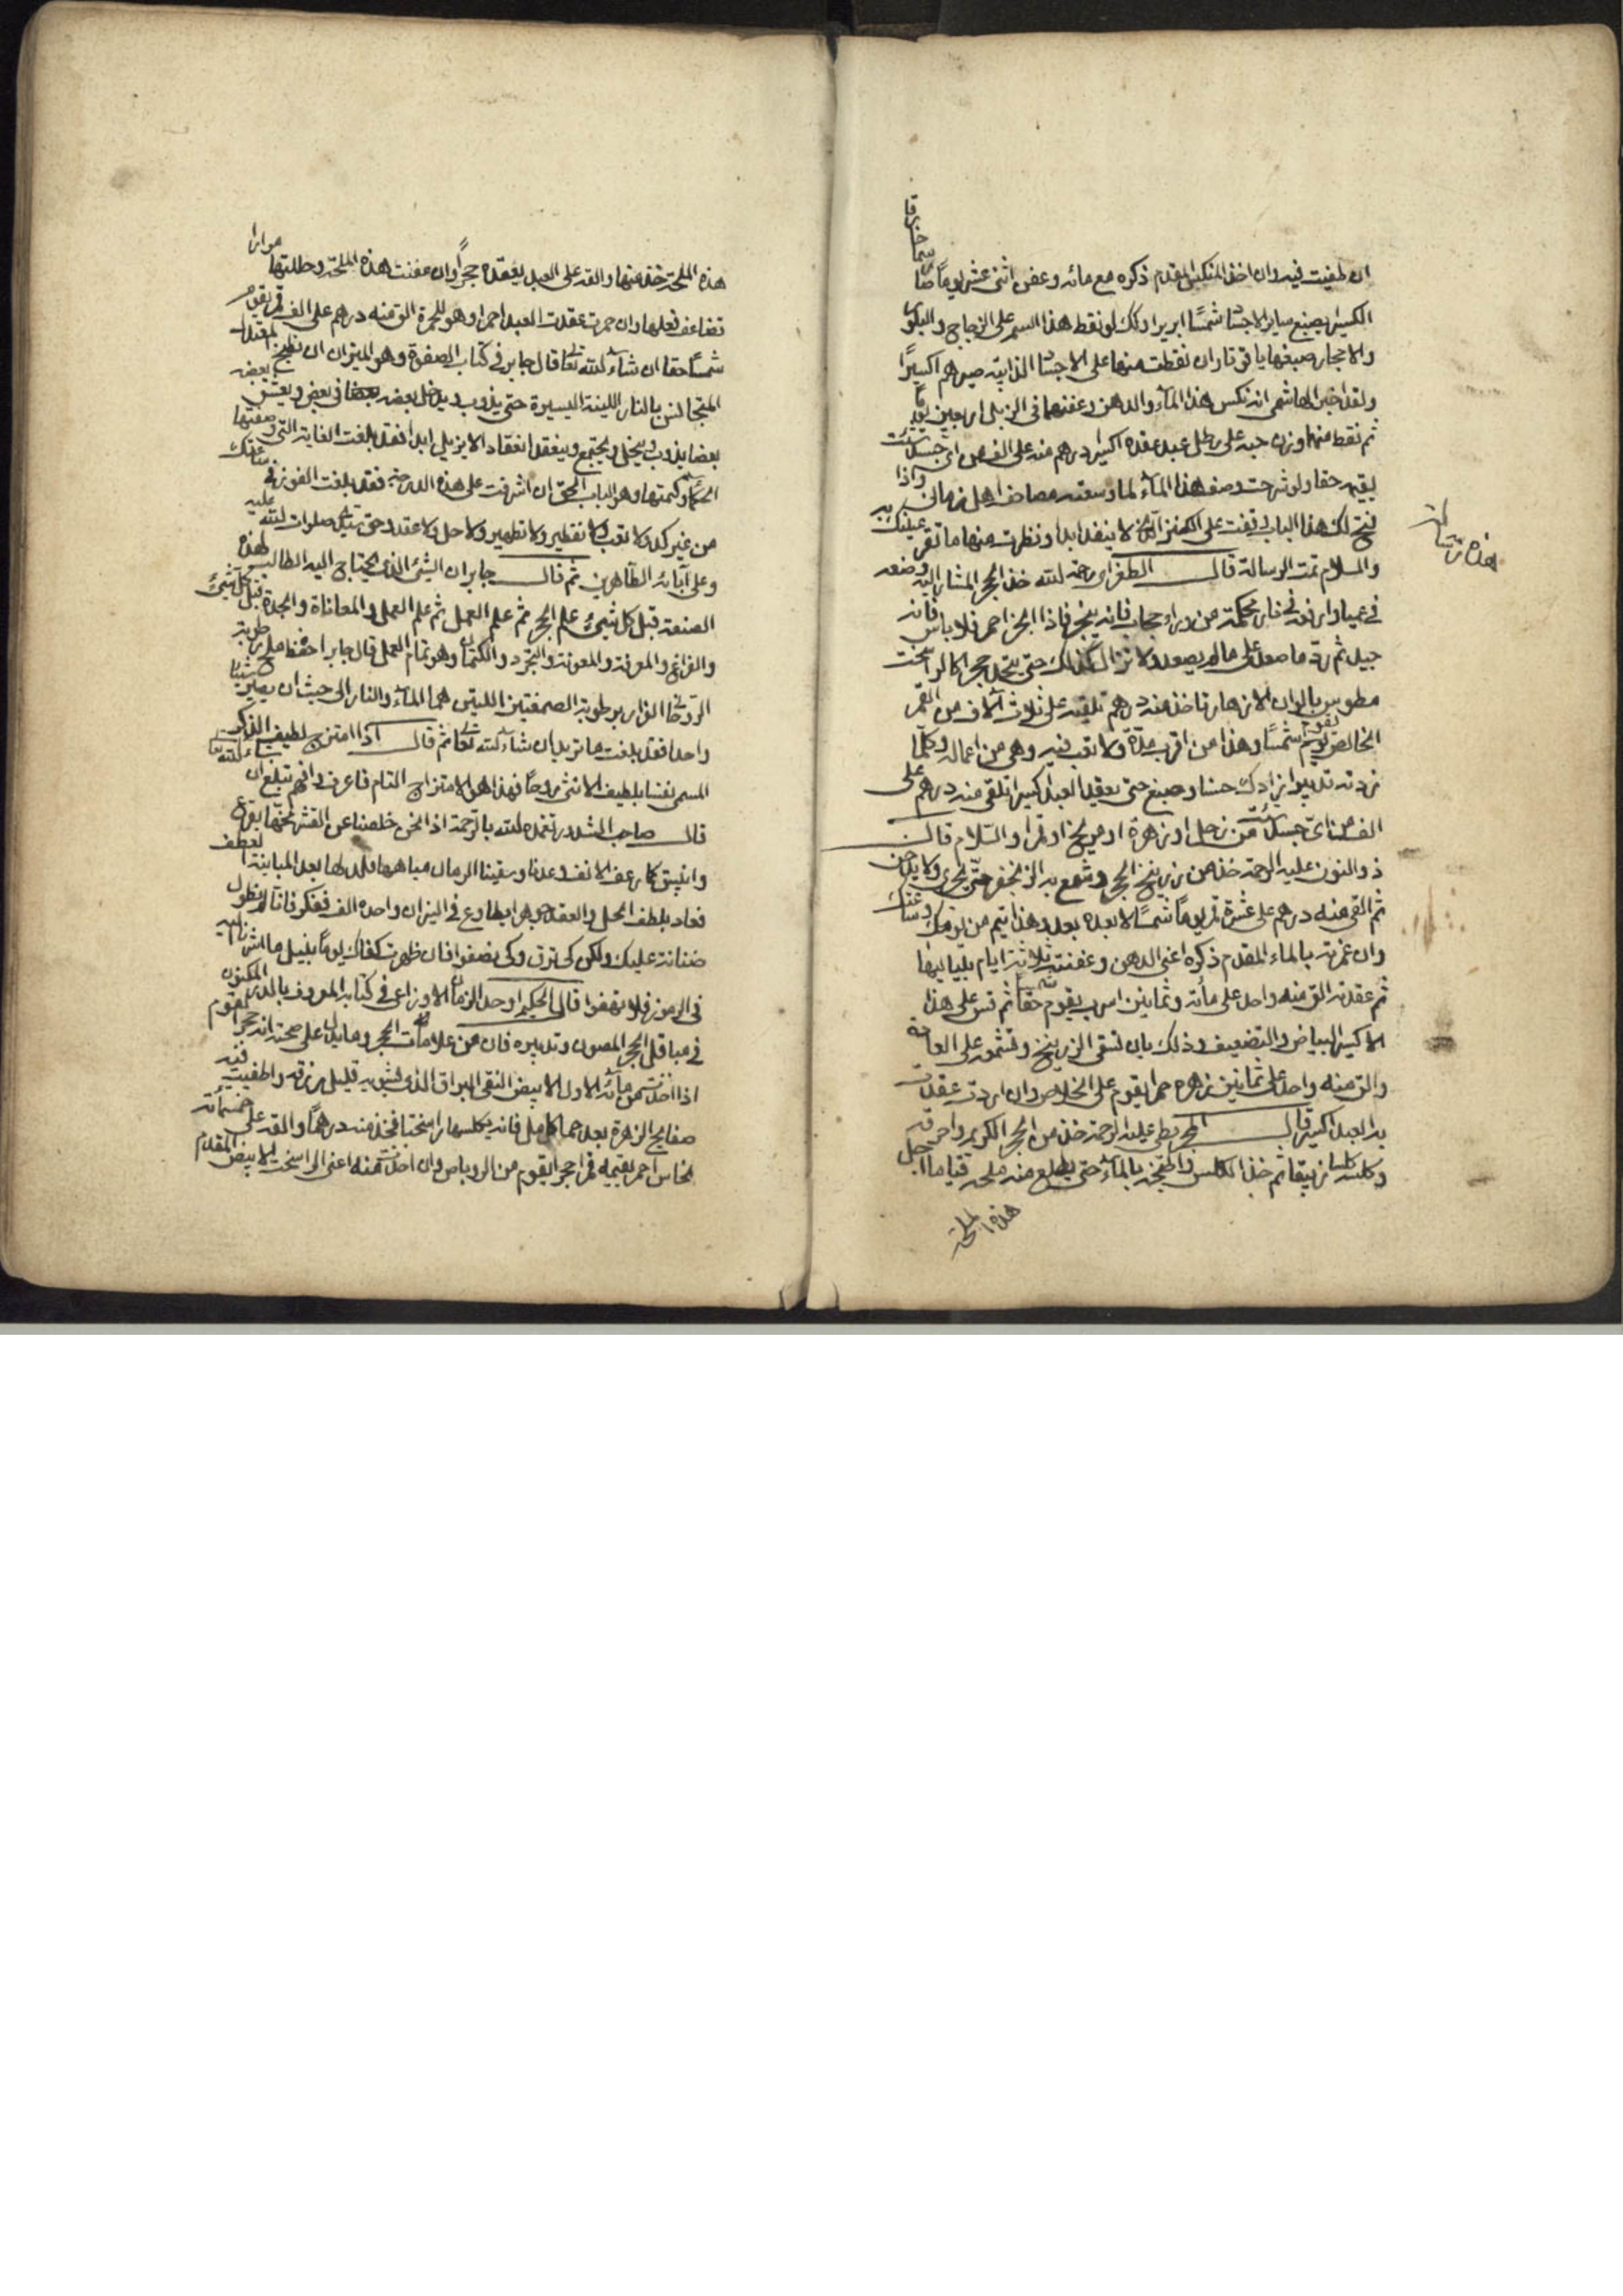 ان طفيت فيه وان اخذ المنكس المقدم ذكره مع مائه وعفن اثنى عشر يوما صار سما خارقا
الكسير يصبغ ساير الاجساد شمسا ابريزا وكذلك لو نقط هذا السم على الزجاج والبلور
والاحجار صبغها ياقوتا وان نقطت منها على الاجساد الذايبة صيرهم اكسيرا
ولقد اخبر الهاشمي انه نكس هذا الماء والدهن وعفنهما في الزبل اربعين يوما
ثم نقط منهما وزن حبه على رطل عبد عقده اكسير درهم منه على الف من اى جسد شئت
يقيمه حقا ولو شرحت وصف هذا الماء لما وسعته مصاحف اهل زماني واذا
فتح لك هذا الباب وقفت على الكنز الذى لا ينفد ابدا ونظرت منها ما تقر به عينك
والسلام تمت الرسالة قال الطغراى رحمه الله خذ الحجر المشار اليه وضعه
في عميا واوقد نار محكمة من وراء حجاب فانه يبخر فاذا البخر احمر فلا باس فانه
جيد ثم رد ما صعد على ما لم يصعد ولا تزال كذلك حتى يتحد حجرا كالراسخت
مطوس بالوان الازهار تاخذ منه درهم تلقيه على ثلاث الاف من القمر
الخالص يقوم شمسا وهذا من اقرب مدة ولا تعب فيه وهى من اعماله وكلما
زدته تدبيرا زادك حسنا وصبغ حتى يعقد العبد اكسيرا تلقى منه درهم على
الف من اى جسد شئت من زحل او زهرة او مريخ او قمر والسلام قال
ذو النون عليه الرحمة خذ دهن زرنيخ الحجر وشمع به الزنجفر حتى يجرى ولا يدخن
ثم القى منه درهم على عشرة قمر يوما شمسا لا بعده بعد وهذا يتم من يومك وساعتك
وان غمرته بالماء المقدم ذكره اعنى الدهن وعفنته ثلاثة ايام بلياليها
ثم عقدته الق منه واحد على مائة وثمانين اسرب يقوم شمسا حقا ثم قس على هذا
الاكسير البياض والتضعيف وذلك بان تسقى الزرنيخ وتشمعه على العادة
والق منه واحد على ثمانين زهره حمرا يقوم على الخلاص وان اردت عقدت
به العبد اكسير قال المجريطى عليه الرحمة خذ من الحجر الكريم واحرقه
وكلسه كلسا زيبقا ثم خذ الكلس واطبخه بالماء حتى يطلع منه ملحه قتياما اجل
هذه الملحة
هذه رسالة
هذه الملحة خذ منها والقه على العبد يعقده حجرا وان عفنت هذه الملحة وحللتها مرارا
تضاعف فعلها وان حمرت عقدت العبد احمرا وهو للحمرة الق منه درهم على الف قمر يقوم
شمسا حقا ان شاء الله تعالى قال جابر في كتاب الصفوة وهو الميزان ان تطبخ المعتدل
المتجانس بالنار اللينة اليسيرة حتى يذوب ويدخل بعضه في بعض ويعشق بعضه
بعضا يذوب وينحل ويجتمع وينعقد انعقاد الا يزيل ابدا فقد بلغت الغاية التى وصفتها
الحكما وكتمتها وهو الباب الحق ان اشرفت على هذه الدرجة فقد بلغت الفوز في ساعتك
من غير كد ولا تعب ولا تقطير ولا تطهير ولا حل ولا عقد وحق سيدى صلوات الله عليه
وعلى آبائه الطاهرين ثم قال جابر ان الشئ الذى يحتاج اليه الطالب لهذه
الصنعة قبل كل شيئ علم الحجر ثم علم العمل ثم علم العمل والمعاناة والجدة قبل كل شيئ
والفراغ والمعرفة والمعونة والتجرد والكتمان وهو تمام العمل قال جابر احفظ على رطوبة
الروح الزار برطوبة الصمغتين اللتين هما الماء والنار الى حيث ان يصير شيئا
واحدا فقد بلغت ما تريد ان شاء الله تعالى ثم قال اذا امتزج لطيف الذكر
المسمى نفسا بلطيف الانثى روحا فهذا هو الامتزاج التام فاعرف وافهم تبلغ ان شاء الله
قال صاحب الشذور تغمده الله بالرحمة اذ انحن خلصنا عن القشر نحتها بقرع
وانبيق كما رعف الانف وعدنا وسقينا الرمال مياهها بعد المباينة لعطف
فعاد بلطف الحل والعقد جوهرا يطاوع في النيران واحده الف ففكر فانا لم نطول
ضنانة عليك ولكن كى ترق وكى يصفوا فان ظهرت كفاك يوما بنيل ما اشرنا اليه
في الرموز فلا تهفوا قال الحكيم اوحد الزمان الاوزاعى في كتابه المعروف بالدر المكنون
في مبا قلى الحجر المصون وتدبيره فان من علامات الحجر وما يدل على صحته انه حجر القوم
اذا اخذت من مائه الاول الابيض النقى البراق الذى يشوبه قليل زرقه واطفيت فيه
صفايح الزهرة بعد حما كامل فانه يكلسها راسختا فخذ منه درهما والقه على خمسمائة
نحاس احمر يقيمه قمرا حجرا يقوم من الروباص وان اخذت منه اعنى الراسخت الابيض المقدم